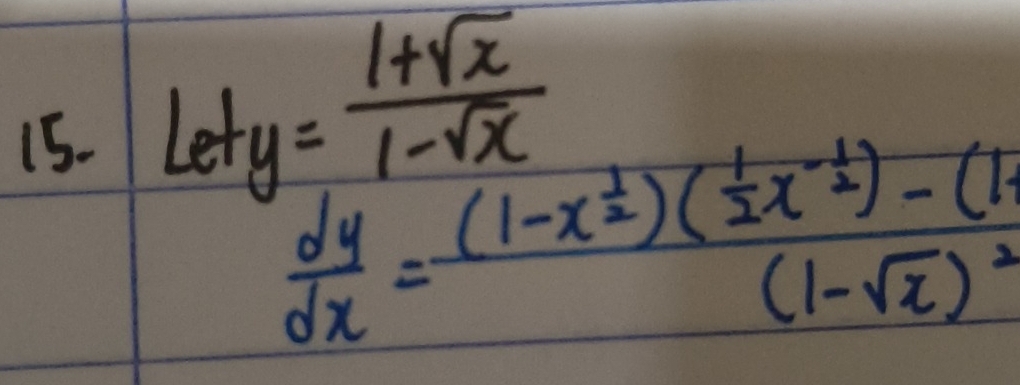 15. Let y = \frac{1+\sqrt{x}}{1-\sqrt{x}}
\frac{dy}{dx} = \frac{(1-x^{\frac{1}{2}})(\frac{1}{2}x^{-\frac{1}{2}}) - (1+}{(1-\sqrt{x})^2}